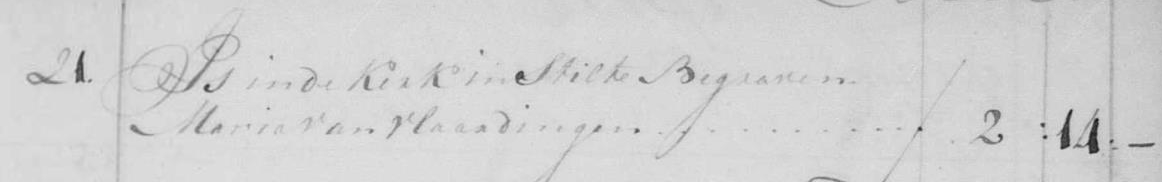 21. Is in de Kerk in Stilte Begraaven
Maria van Vlaardingen . . . . . . . . . . 2 : 14 : –